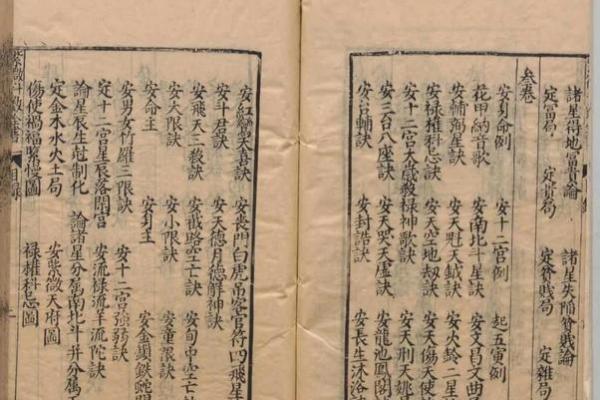 諸星得地富貴論 諸星失陷貧賤論
定富局 定貴局 定貧賤局 定雜局
叁卷
安身命例 安十二宮例 起五寅例
花甲納音歌 安南北斗星訣 安文昌文曲
安輔弼星訣 安天魁天鉞訣 安火鈴二星
安祿權科忌訣 安天空地劫訣 安天傷天使
安十二太歲殺祿神歌訣 安天刑天姚
安三台八座訣 安天哭天虛訣 安龍池鳳閣
安台輔訣 安封誥訣 安長生沐浴
安紅鸞天喜訣 安喪門白虎吊客官符四飛星
安斗君訣 安天德月德解神訣
安飛天三殺訣 安截路空亡訣 安旬中空亡
安大限訣 安小限訣 安童限訣
安命主 安身主 安金鎖鐵蛇
安男女竹羅三限訣 安十二宮強弱訣
定十二宮星辰落閑宮 安流祿流羊流陀訣
論星辰生尅制化 論諸星分属南北斗并分属
定金木水火土局 安紫微天府圖
傷使禍福緊慢圖 祿權科忌圖
目錄